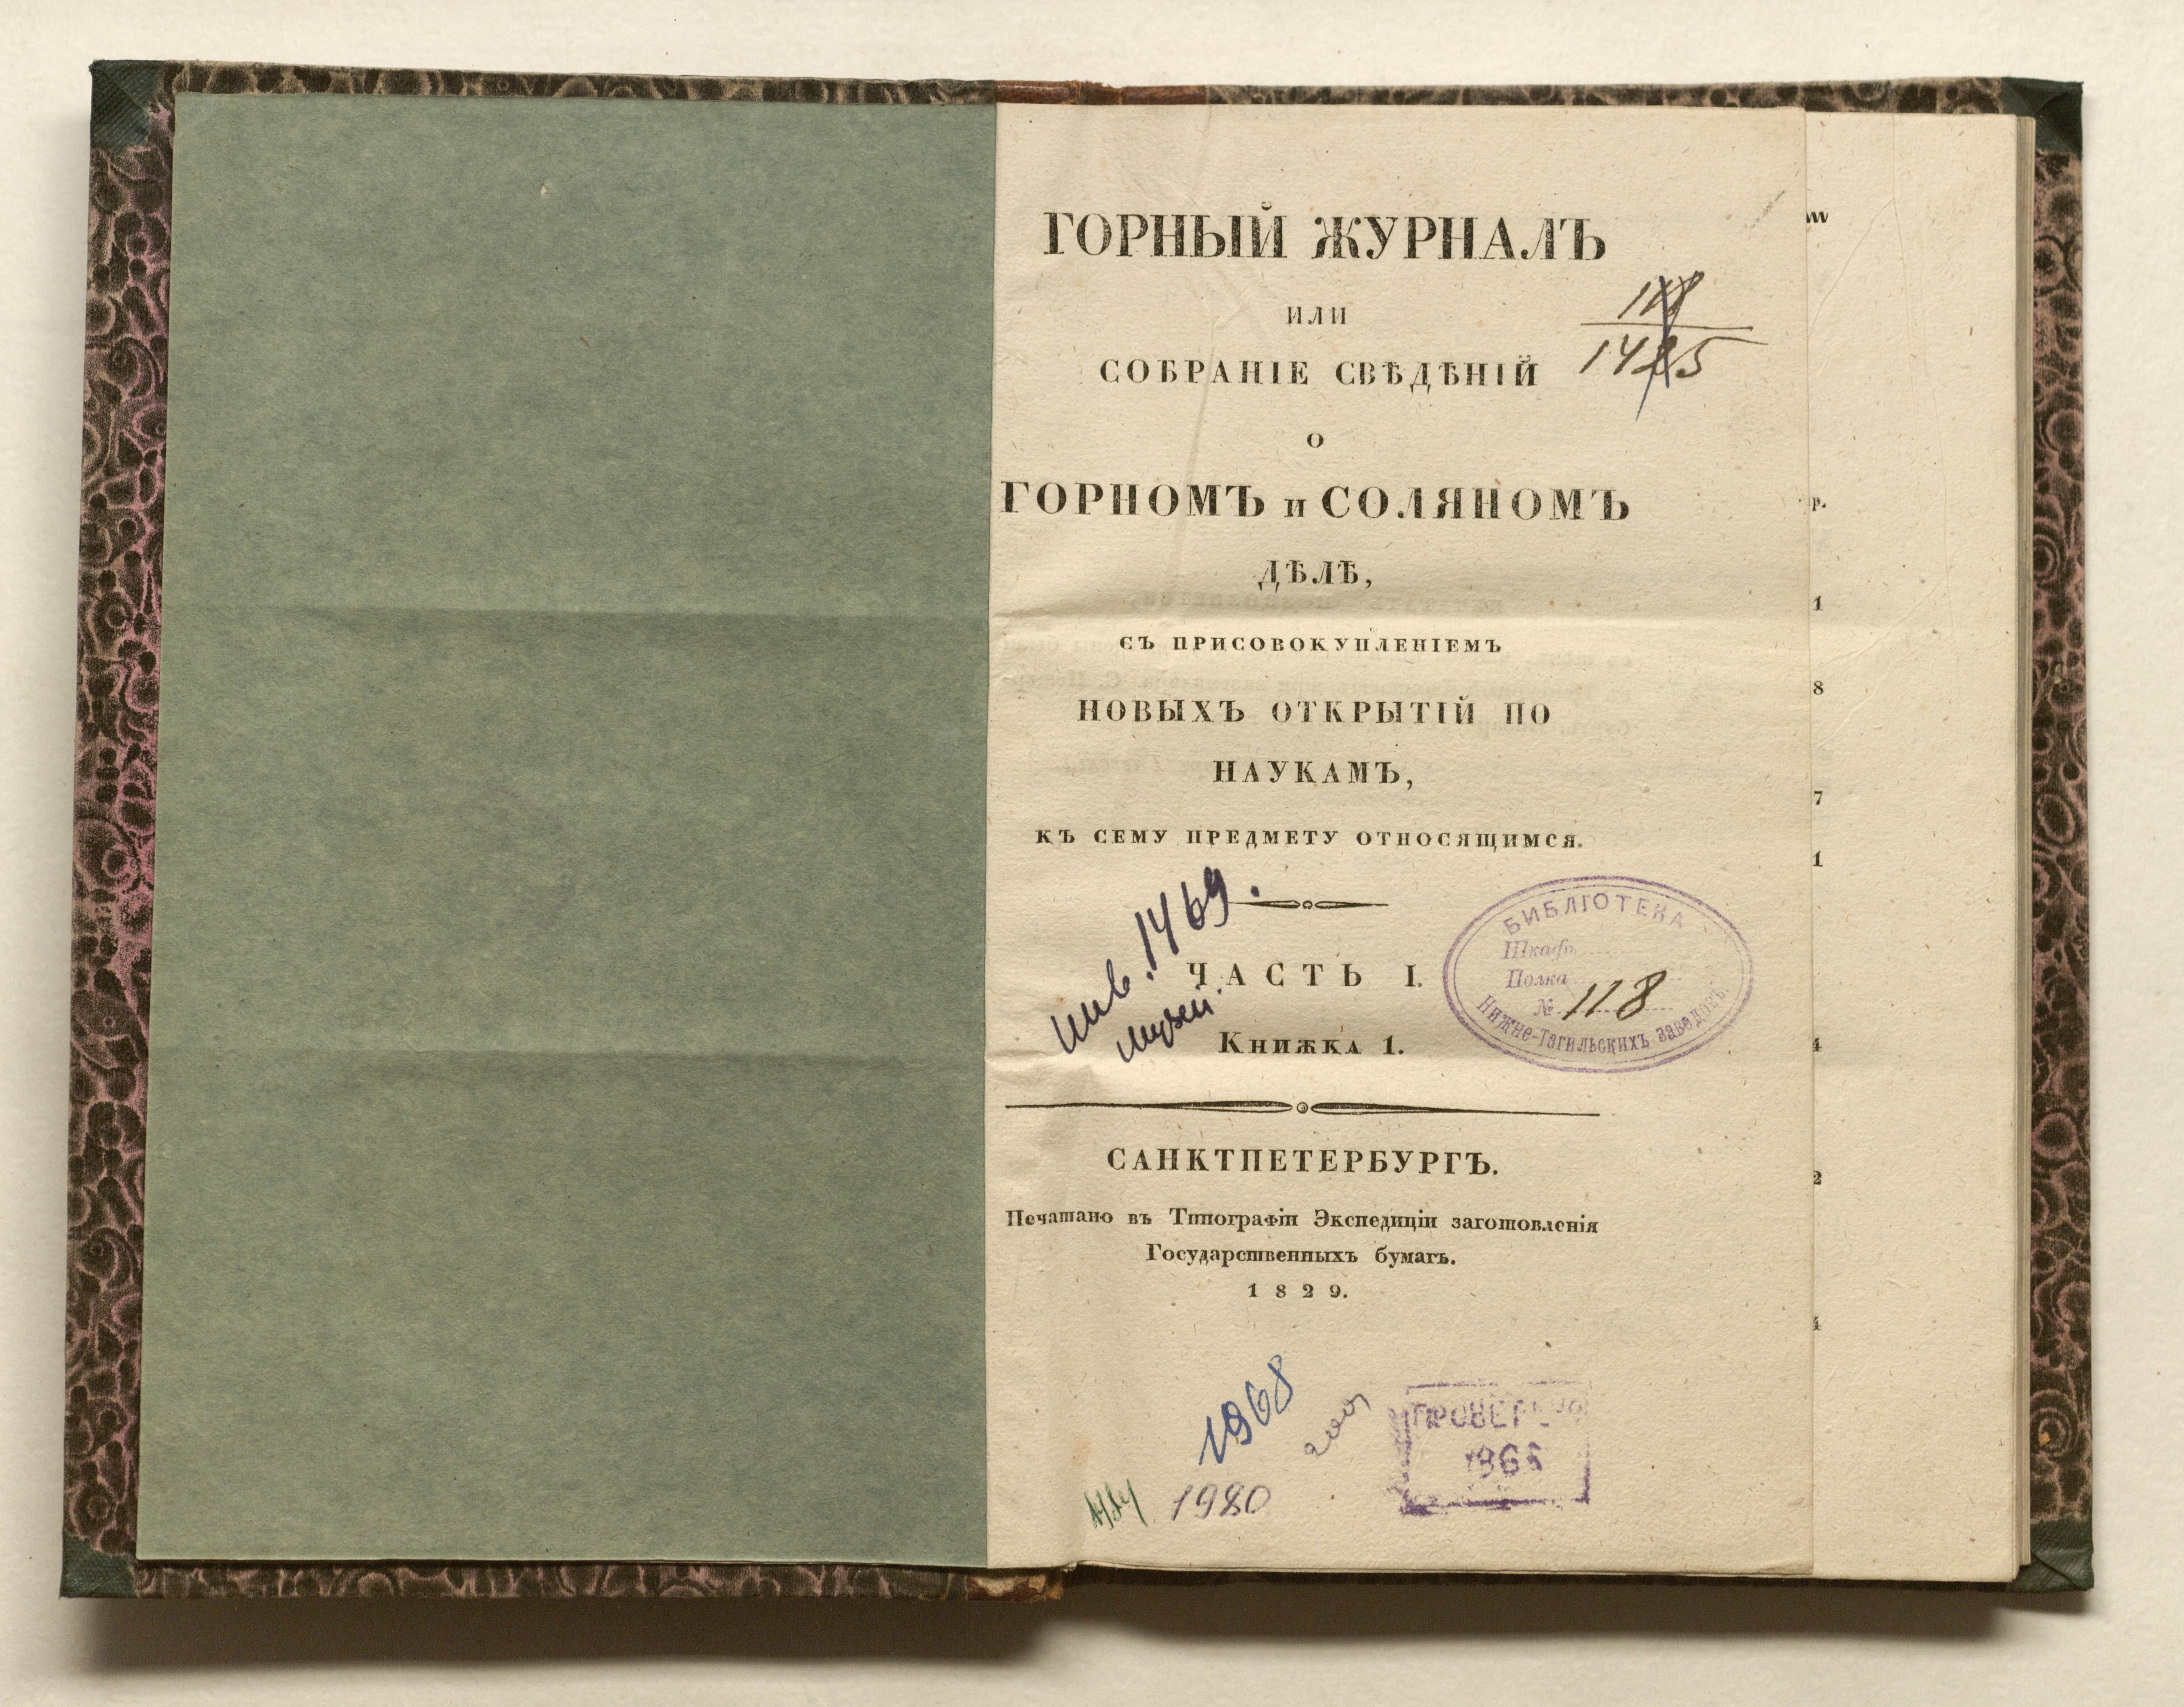 ГОРНЫЙ ЖУРНАЛЪ
ИЛИ
СОБРАНІЕ СВѢДѢНІЙ
О
ГОРНОМЪ И СОЛЯНОМЪ
ДѢЛѢ,
СЪ ПРИСОВОКУПЛЕНІЕМЪ
НОВЫХЪ ОТКРЫТІЙ ПО
НАУКАМЪ,
КЪ СЕМУ ПРЕДМЕТУ ОТНОСЯЩИМСЯ.
инв. 1469.
музей.
ЧАСТЬ I.
Книжка 1.
БИБЛІОТЕКА
Шкафъ
Полка
№ 118
Нижне-Тагильскихъ заводовъ.
САНКТПЕТЕРБУРГЪ.
Печатано въ Типографіи Экспедиціи заготовленія
Государственныхъ бумагъ.
1829.
1968
1980
ПРОВЕРЕНО
т
р.
1
8
7
1
4
2
4